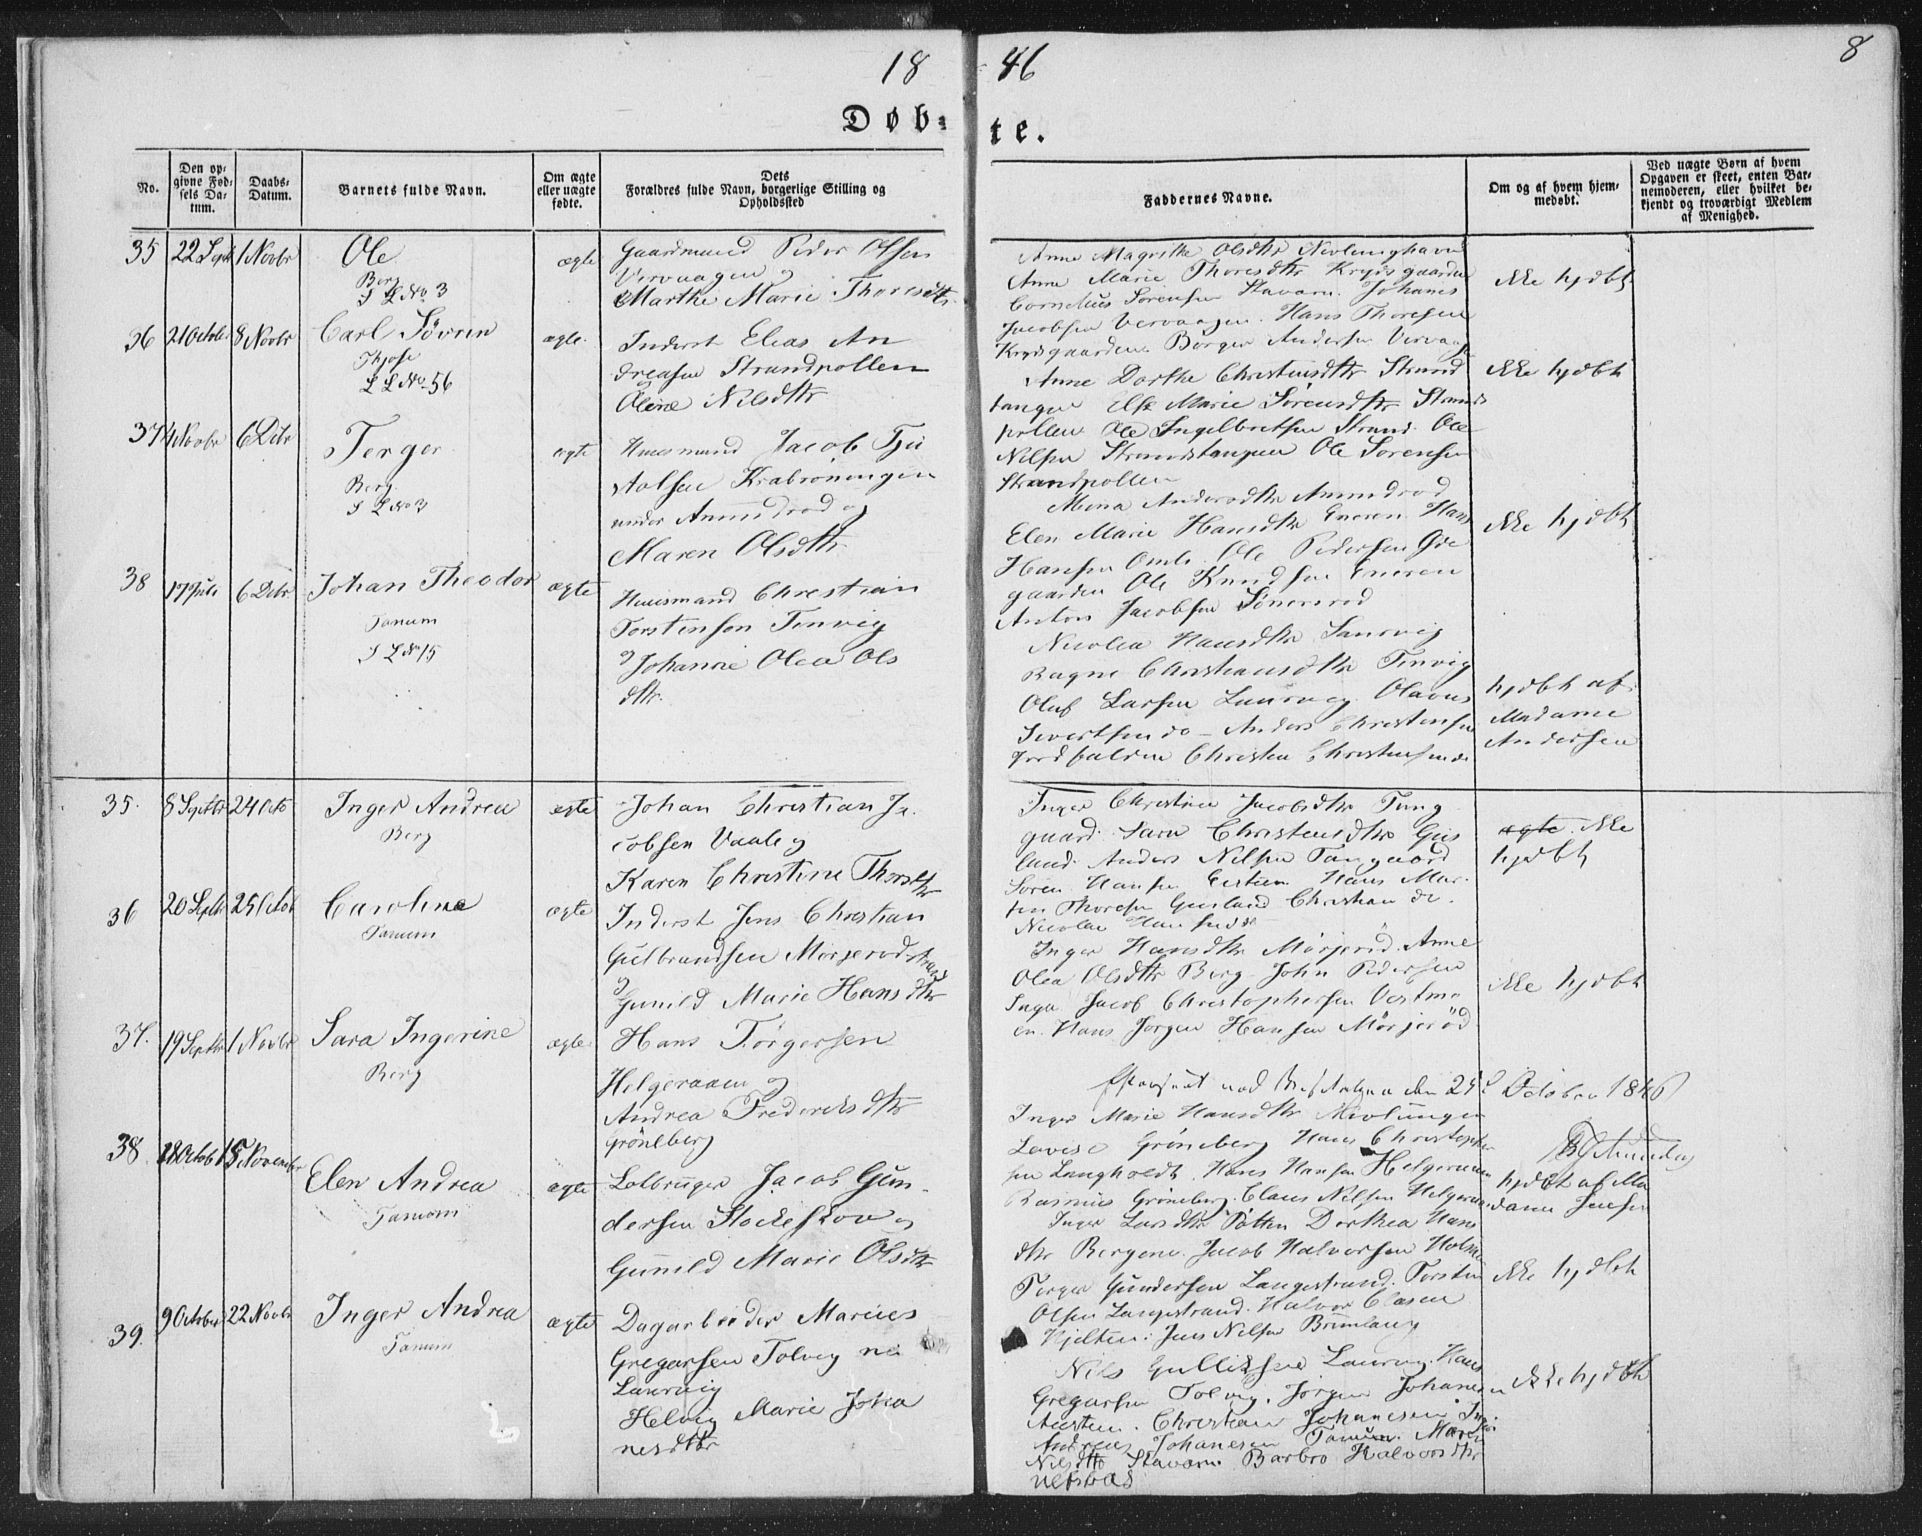 18 46
8
Døb- te.
No.
Den op-
givne Fød-
sels Da-
tum.
Daabs-
Datum.
Barnets fulde Navn.
Om ægte
eller uægte
fødte.
Dets
Forældres fulde Navn, borgerlige Stilling og
Opholdssted
Faddernes Navne.
Om og af hvem hjem-
medøbt.
Ved uægte Børn af hvem
Opgaven er skeet, enten Bar-
nemoderen, eller hvilket be-
kjendt og troværdigt Medlem
af Menighed.
35 22 Sept 1 Novbr Ole ægte
Berg
S L No 3
Gaardmand Peder Olsen
Vervaagen og
Marthe Marie Thoresdtr.
Anne Magrethe Olsdtr Nevlunghavn
Anne Marie Thoresdtr Krydsgaarden
Cornelius Sørensen Stavern Johanes
Jacobsen Vervaagen. Hans Thoresen
Krydsgaarden Børger Andersen Vervaag
ikke hjdbt
36 21 October 8 Novbr Carl Søvren ægte.
Thjose
L L No 56
Inderst Elias An
dreasen Strandpollen
Oline Nilsdtr
Anne Dorthe Christensdtr Strand
tangen Else Marie Sørensdtr Strand
pollen Ole Ingelbretsen Strand Ole
Nilsen Strandstangen Ole Sørensen
Strandpollen
ikke hjdbt
37 4 Novbr 6 Dcbr Terger ægte
Berg.
S L No 3
Huusmand Jacob Tju
stolsen Krabroningen
under Amundrød og
Maren Olsdtr
Mona Andersdtr Amundrød
Elen Marie Hansdtr Eneren Hans
Hansen Omli Ole Pedersen Øde
gaarden Ole Knudsen Eneren
Anton Jacobsen Sønersrød
ikke hjdbt
38 17 Juli 6 Dcbr Johan Theodor ægte
Tanum
S L No 15
Huusmand Christian
Torstensen Tenvig
og Johanne Olea Ols
dtr.
Nicolea Hansdtr Sanvig
Ragne Christiansdtr Tenvig
Oluf Larsen Laurvig Olavus
Sivertsen do – Anders Christensen
Jordfalden Christen Christensen do
hjdbt af
Madame
Andersen
35. 8 Septbr 24 Octo Inger Andrea ægte
Berg
Johan Christian Ja
cobsen Vaale og
Karen Christine Thorsdtr
Inger Christine Jacobsdtr Tang
gaard Sara Christensdtr Gus
land. Anders Nilsen Tangaard
Søren Hansen Hans Mar
tin Thoresen Gusland Christian do.
Nicolai Hansen
ægte ikke
hjdbt
36 20 Septbr 25 Octob Caroline ægte
Tanum
Inderst Jens Christian
Gulbrandsen Mørjerød strand
og Gunild Marie Hansdtr
Inger Hansdtr Mørjerød. Anne
Olea Olsdtr Berg John Pedersen
Inga Jacob Christophersen Vestmo
en Hans Jørgen Hansen Mørjerød
ikke hjdbt
37. 19 Septbr 1 Novbr Sara Ingerine ægte.
Berg
Hans Tørgersen
Helgeraaen og
Andrea Fredereksdtr
Grönlberg
Efterseet ved Visitatsen den 25d October 1846
Inger Marie Hansdtr Nevlungen
Lovise Grøneberg Hans Christophe
sen Langholdt. Hans Hansen Helgeraaen
Rasmus Grøneberg. Claus Nilsen Helgeraa
hjdbt af Ma
dame Jensen
38. 28 Octob 15 November Elen Andrea ægte
Tanum
Lotbruger Jacob Gun
dersen Stockeskov og
Gunild Marie Olsdtr
Inger Larsdtr Pøtten Dorthea Hans
dtr Bergene. Jacob Halvorsen Holm
Terger Gundersen Langestrand. Torsten
Olsen Langestrand. Halvor Clasen
Hjelten. Jens Nilsen Brunlang
ikke hjdbt
39. 9 October 22 Novbr Inger Andrea ægte
Tanum
Dagarbeider Marius
Gregarsen Tolvig ved
Laurvig
Helvig Marie Joha
nesdtr
Nils Gulliksen Laurvig. Hans
Gregarsen Tolvig. Jørgen Johanesen
Austen. Christian Johanesen
Andreas Johanesen Tanum. Maren
Nilsdtr Stavern Barbro Halvorsdtr
ikke hjdbt